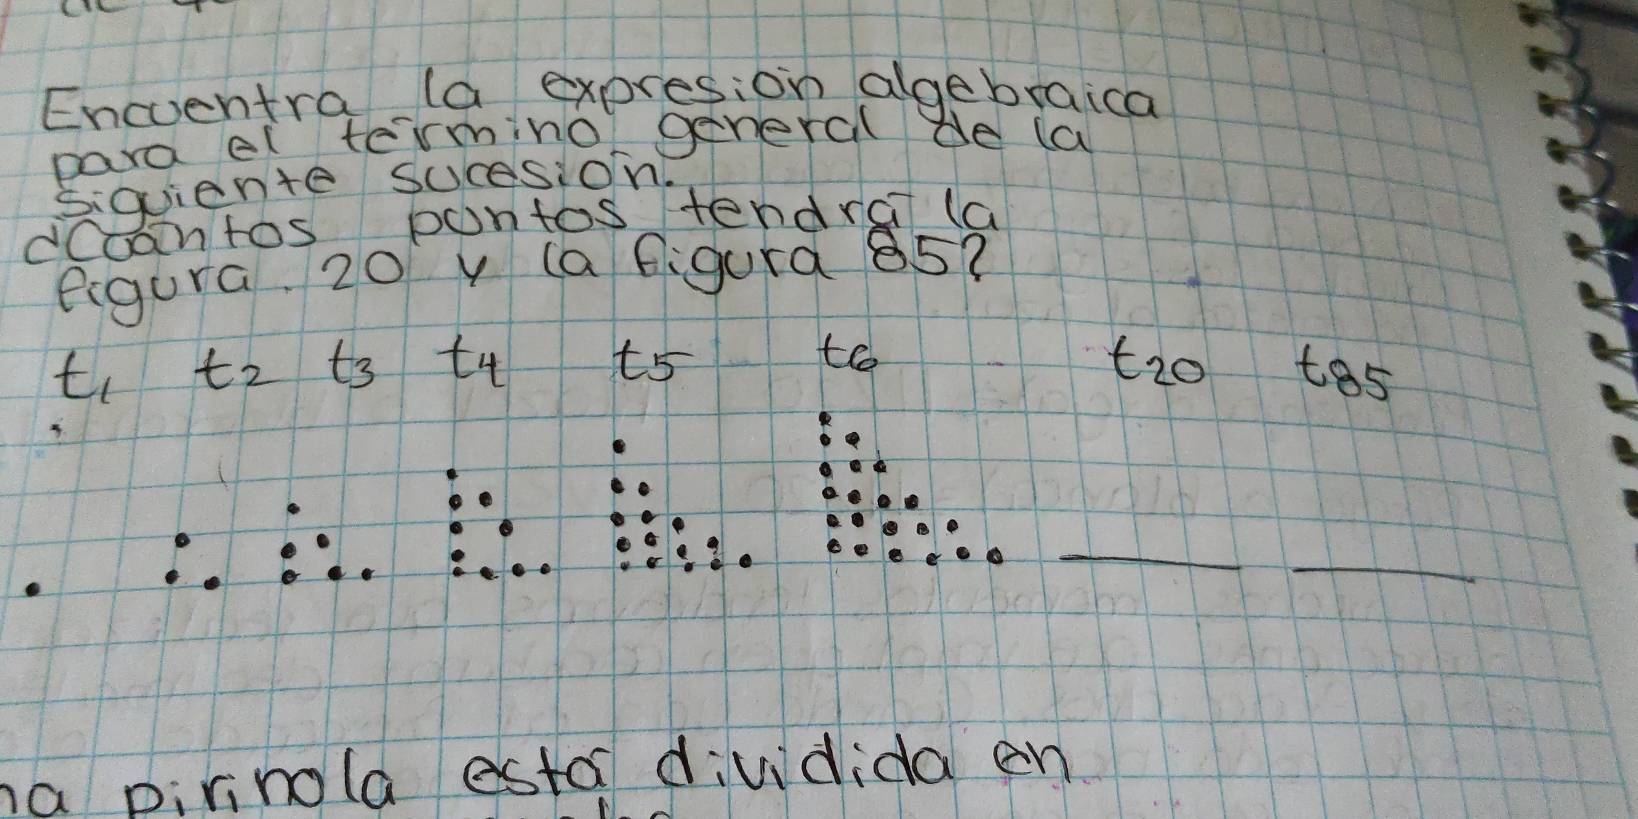 Encuentra la expresión algebraica
para el término general de la
siguiente sucesión.
¿Cuántos puntos tendrá la
figura. 20 y la figura 85?
t1 t2 t3 t4 t5 t6 t20 t85
na pirinola está dividida en